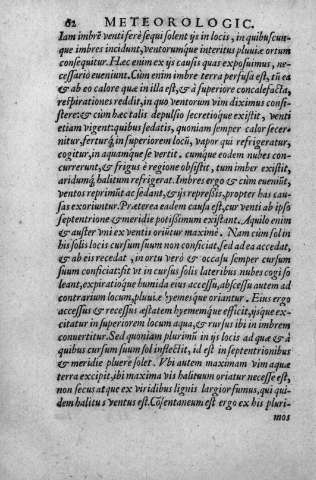 62 METEOROLOGIC.
Iam imbrē venti ferè sequi solent ijs in locis, in quibuscun-
que imbres incidunt, ventorumque interitus pluuiæ ortum
consequitur. Hæc enim ex ijs causis quas exposuimus, ne-
cessariò eueniunt. Cùm enim imbre terra perfusa est, tū ea
& ab eo calore quæ in illa est, & à superiore concalefacta,
respirationes reddit, in quo ventorum vim diximus consi-
stere: & cùm hæc talis depulsio secretioque existit, venti
etiam vigent: quibus sedatis, quoniam semper calor secer-
nitur, ferturq́ in superiorem locū, vapor qui refrigeratur,
cogitur, in aquamque se vertit. cumque eodem nubes con-
currerunt, & frigus è regione obsistit, tum imber existit,
aridumq́ halitum refrigerat. Imbres ergo & cùm eueniūt,
ventos reprimūt ac sedant, & ijs repreßis, propter has cau-
sas exoriuntur. Præterea eadem causa est, cur venti ab ipso
septentrione & meridie potißimum existant. Aquilo enim
& auster vni ex ventis oriūtur maximè. Nam cùm sol in
his solis locis cursum suum non conficiat, sed ad ea accedat,
& ab eis recedat, in ortu verò & occasu semper cursum
suum conficiat: fit vt in cursus solis lateribus nubes cogi so
leant, expiratióque humida eius accessu, abscessu autem ad
contrarium locum, pluuiæ hyemesque oriantur. Eius ergo
accessus & recessus æstatem hyememque efficit, ijsque ex-
citatur in superiorem locum aqua, & rursus ibi in imbrem
conuertitur. Sed quoniam plurimū in ijs locis ad quæ & à
quibus cursum suum sol inflectit, id est in septentrionibus
& meridie pluere solet. Vbi autem maximam vim aquæ
terra excipit, ibi maxima vis halituum oriatur necesse est,
non secus atque ex viridibus lignis largior fumus, qui qui-
dem halitus ventus est. Cōsentaneum est ergo ex his pluri-
mos